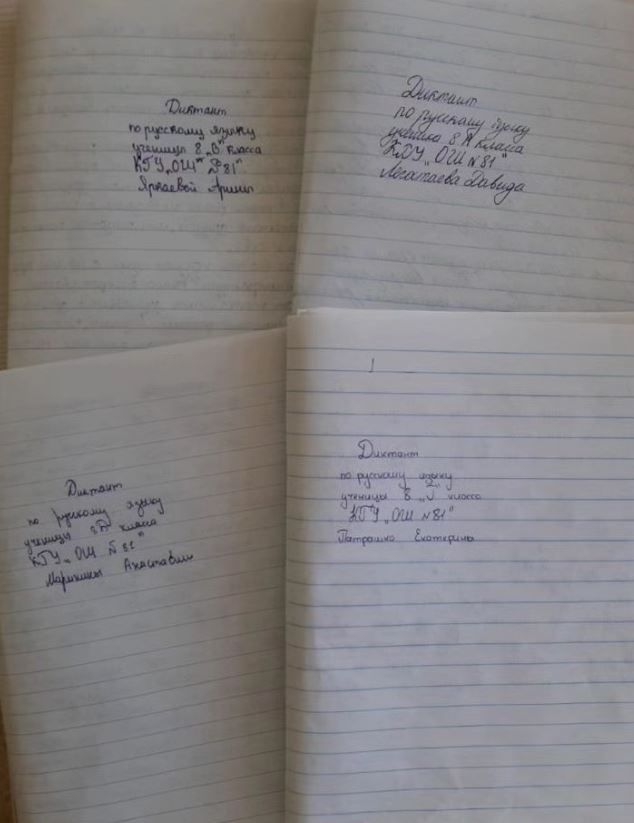 Диктант
по русскому языку
ученицы 8 „В" класса
КГУ „ОШ" №81"
Яркаевой Арины
Диктант
по русскому языку
ученика 8 А класса
КГУ „ОШ №81"
Давида
Диктант
по русскому языку
ученицы 8А класса
КГУ „ОШ №81"
Марихины Анастасии
Диктант
по русскому языку
ученицы 8 класса
КГУ „ОШ №81"
Патрашко Екатерины